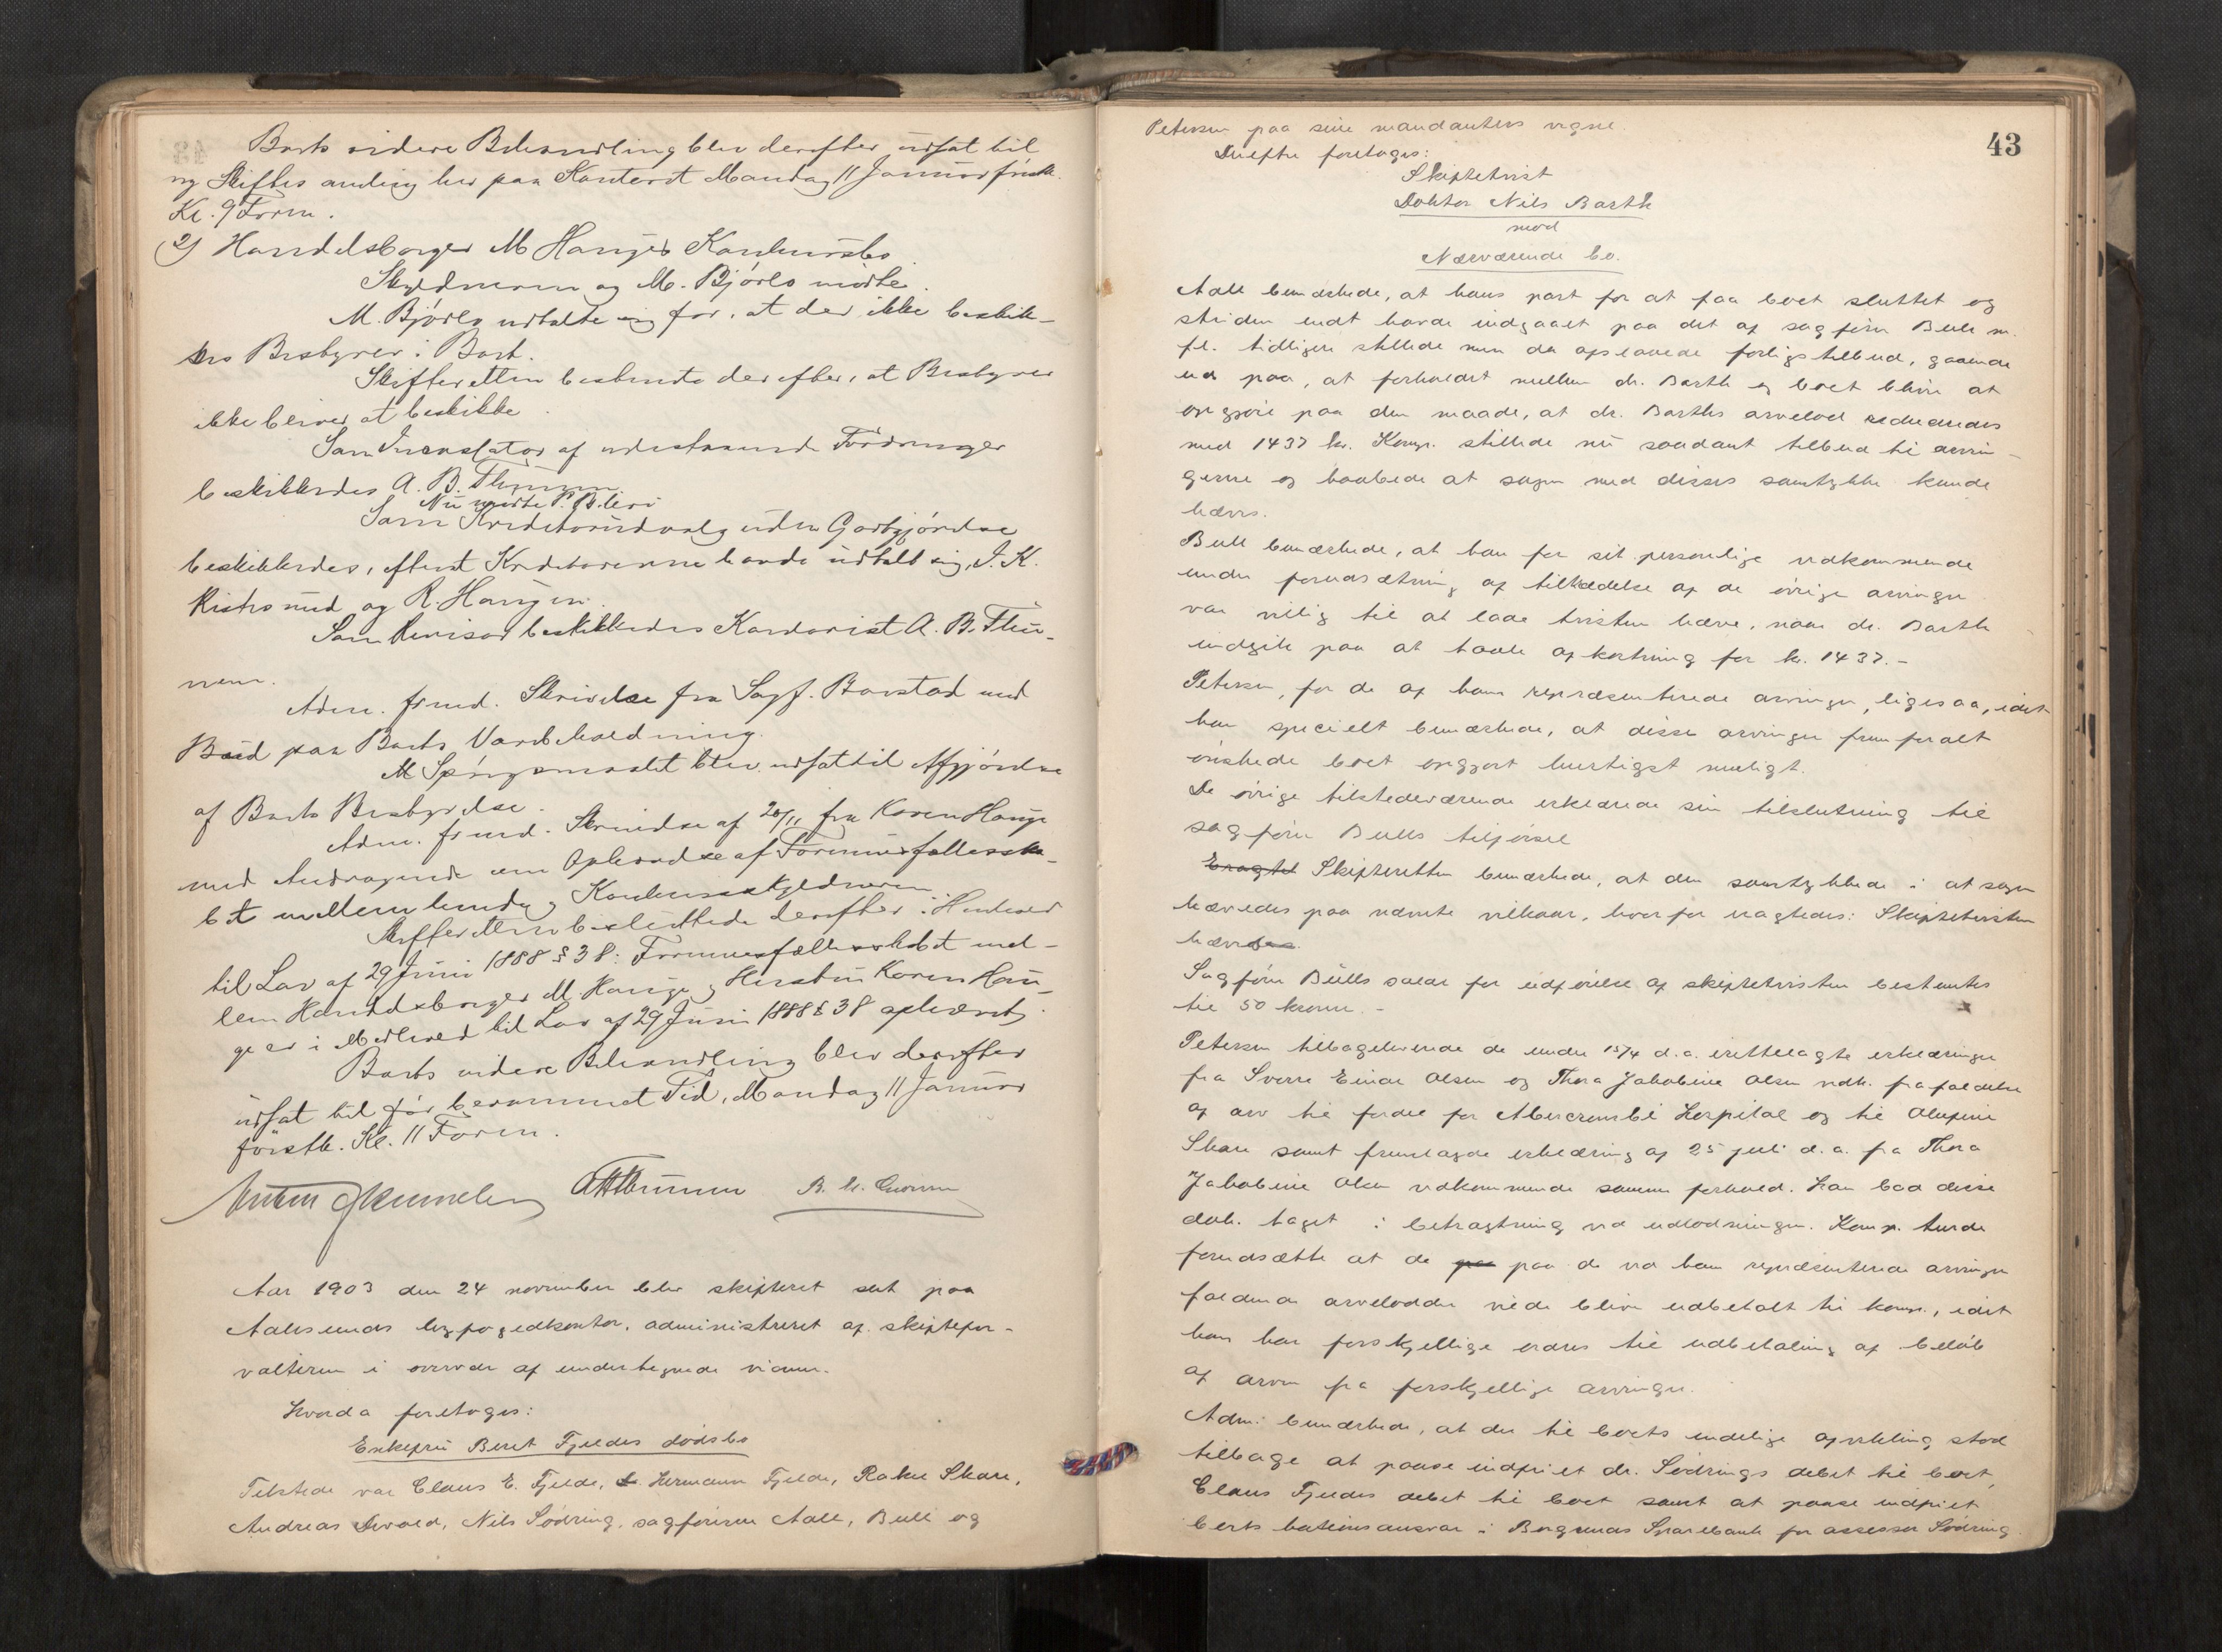 Boets videre Behandling blev derefter udsat til
ny Skiftesamling her paa Kontoret Mandag 11 Januar förstk.
Kl. 9 Form.
2) Handelsborger M Hauges Konkursbo.
Skyldneren og M. Björlo mödte.
M. Björlo udtalte sig for, at der ikke beskik-
kes Bestyrer i Boet.
Skifteretten bestemte derefter, at Bestyrer
ikke bliver at beskikke.
Som Incassator af udestaaende Fordringer
beskikkedes A. B. Thunem
Nu mödte P. B.
Som Kreditorudvalg uden Godtgjörelse
beskikkedes, efterat Kreditorerne havde udtalt sig, I. K.
og R. Haugen.
Som Revisor beskikkedes Kordorist A. B. Thu-
nem.
Adm. freml. Skrivelse fra Sagf. Borstad med
Bud paa Boets Varebeholdning.
Spörgsmaalet blev udsat til Afgjörelse
af Boets Bestyrelse.
Adm. freml. Skrivelse af 20/11 fra Karen Hauge
med Andragende om Ophævelse af Formuesfællesska-
bet mellem hende og Konkursskyldneren.
Skifteretten besluttede derefter i Henhold
til Lov af 29 Juni 1888 § 38: Formuesfællesskabet mel-
lem Handelsborger M Hauge og Hustru Karen Hau-
ge er i Medhold til Lov af 29 Juni 1888 § 38 ophævet.
Boets videre Behandling blev derefter
udsat til för berammet Tid, Mandag 11 Januar
förstk. Kl. 11 Form.
ABThunem
Aar 1903 den 24 november blev skifteret sat paa
Aalesunds byfogedkontor, administreret af skiftefor-
valteren i overvær af undertegnede vidner.
Hvorda foretoges:
Enkefru Beret Fjeldes dødsbo
Tilstede var Claus E. Fjelde, Hermann Fjelde, Rakel Skare,
Andreas Devold, Nils Södring, sagförerne Aall, Bull og
43
Petersen paa sine mandanters vegne.
Derefter foretoges:
Skiftetvist
Doktor Nils Barth
mod
Nærværende bo.
Aall bemærkede, at hans part for at faa boet sluttet og
striden endt havde indgaaet paa det af sagfører Bull m.
fl. tidligere stillede men da afslaaede forligstilbud, gaaende
ud paa, at forholdet mellem dr. Barth og boet blive at
opgjöre paa den maade, at dr. Barths arvelod reduceredes
med 1437 kr. Komp. stillede nu saadant tilbud til arvin-
gerne og haabede at sagen med disses samtykke kunde
hæves.
Bull bemærkede, at han for sit personlige vedkommende
under forudsætning af tiltrædelse af de övrige arvinger
var villig til at lade tvisten hæve, naar dr. Barth
indgik paa at taale afkortning for kr. 1437.-
Petersen, for de af ham repræsenterede arvinger, ligesaa, idet
han specielt bemærkede, at disse arvinger fremforalt
önskede boet opgjort hurtigst muligt.
De övrige tilstedeværende erklærede sin tilslutning til
sagfører Bulls tilförsel
Eragtet Skifteretten bemærkede, at den samtykkede i at sagen
hævedes paa nævnte vilkaar, hvorfor eragtedes: Skiftetvisten
hæves.
Sagfører Bulls salær for udförelse af skiftetvisten bestemtes
til 50 kroner.-
Petersen tilbageleverede de under 15/4 d.a. irettelagte erklæringer
fra Sverre Einar Olsen og Thora Jakobine Olsen vedk. frafaldelse
af arv til fordel for Abercrombi Hospital og til Olufine
Skare samt fremlagde erklæring af 25 juli d.a. fra Thora
Jakobine Olsen vedkommende samme forhold. Han bad disse
dok. taget i betragtning ved udlodningen. Komp. turde
forudsætte at de paa paa de ved ham repræsenterede arvinger
faldende arvelodder vilde blive udbetalt til komp., idet
han har forskjellige ordres til udbetaling af beløb
af arven fra forskjellige arvinger.
Adm. bemærkede, at der til boets endelige afvikling stod
tilbage at paase indfriet dr. Södrings debet til boet,
Claus Fjeldes debet til boet samt at paase indfriet
boets kautionsansvar i Borgunds Sparebank for assessor Södring